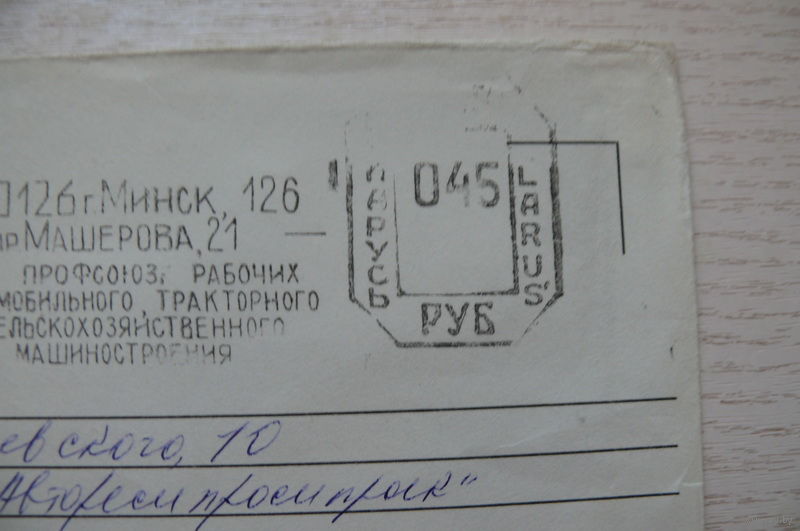 0126 г. МИНСК, 126
пр МАШЕРОВА, 21
ПРОФСОЮЗ РАБОЧИХ
МОБИЛЬНОГО, ТРАКТОРНОГО
ЕЛЬСКОХОЗЯЙСТВЕННОГО
МАШИНОСТРОЕНИЯ
045
ЛАРУСЬ
LARUS'
РУБ
евского, 10